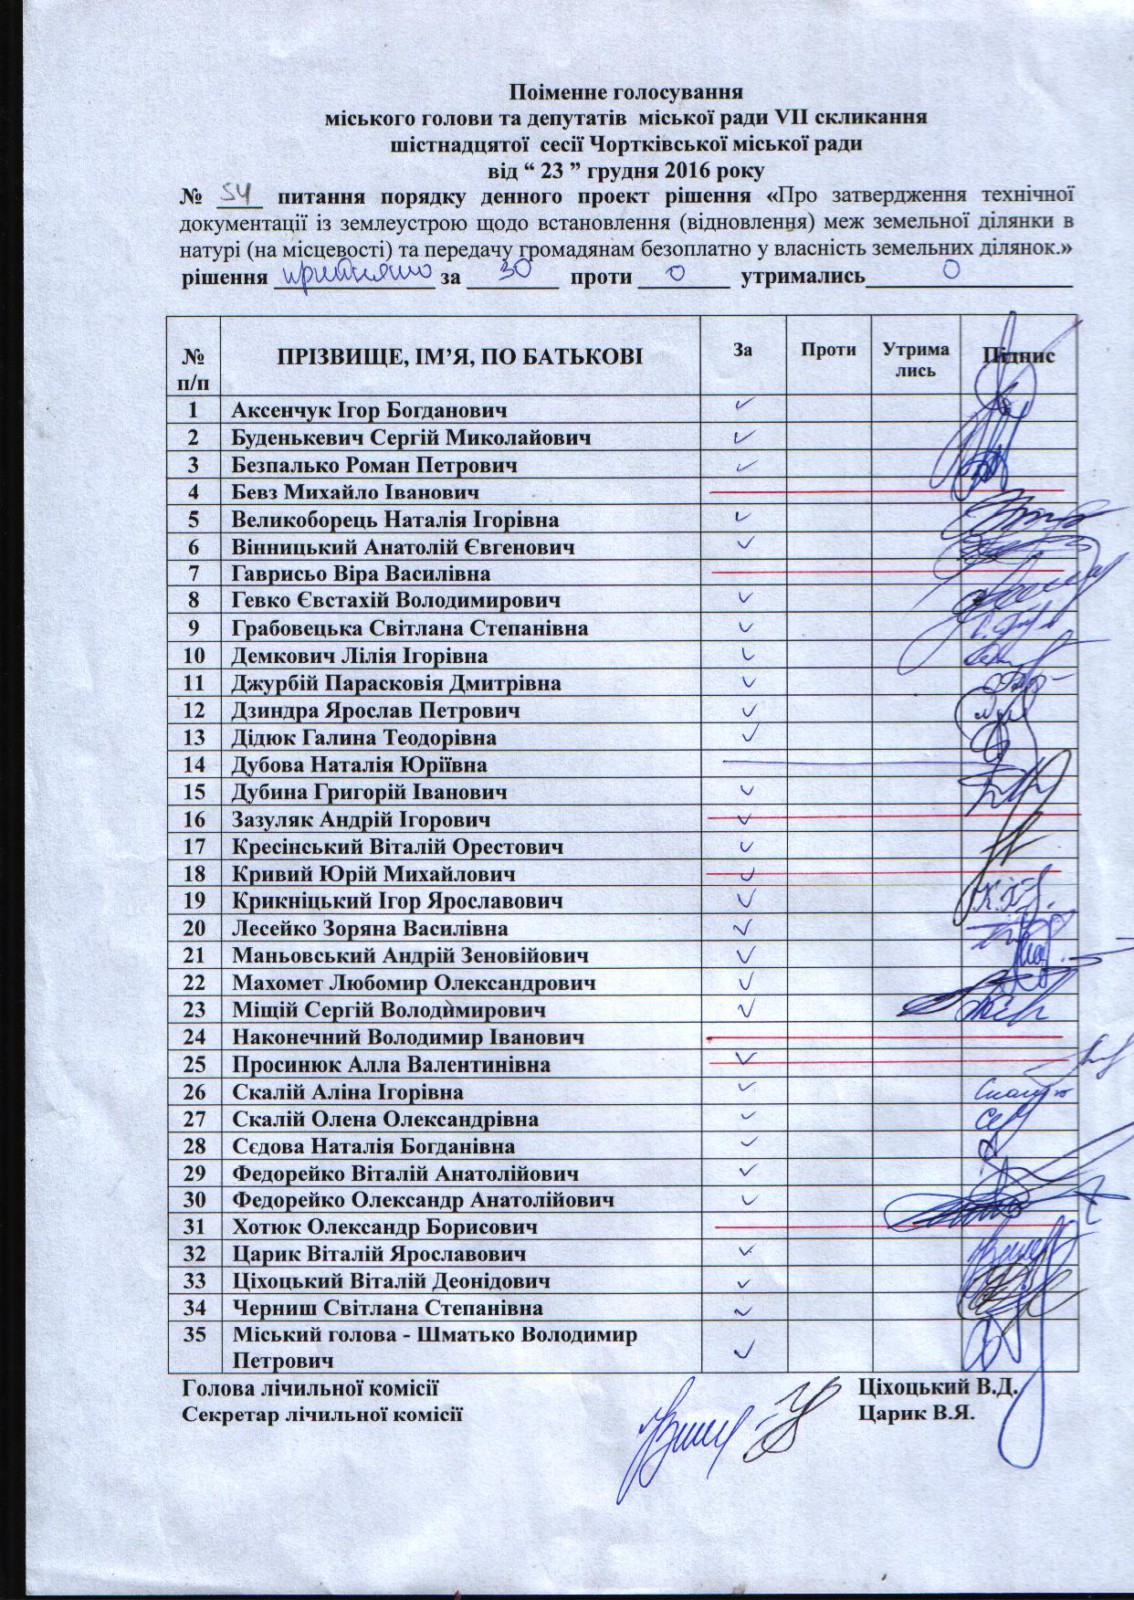 Поіменне голосування
міського голови та депутатів міської ради VII скликання
шістнадцятої сесії Чортківської міської ради
від “ 23 ” грудня 2016 року
№ 54 питання порядку денного проект рішення «Про затвердження технічної
документації із землеустрою щодо встановлення (відновлення) меж земельної ділянки в
натурі (на місцевості) та передачу громадянам безоплатно у власність земельних ділянок.»
рішення прийнято за 30 проти 0 утримались 0
№ п/п ПРІЗВИЩЕ, ІМ’Я, ПО БАТЬКОВІ За Проти Утрима лись Підпис
1 Аксенчук Ігор Богданович ✓
2 Буденькевич Сергій Миколайович ✓
3 Безпалько Роман Петрович ✓
4 Бевз Михайло Іванович
5 Великоборець Наталія Ігорівна ✓
6 Вінницький Анатолій Євгенович ✓
7 Гаврисьо Віра Василівна
8 Гевко Євстахій Володимирович ✓
9 Грабовецька Світлана Степанівна ✓
10 Демкович Лілія Ігорівна ✓
11 Джурбій Парасковія Дмитрівна ✓
12 Дзиндра Ярослав Петрович ✓
13 Дідюк Галина Теодорівна ✓
14 Дубова Наталія Юріївна
15 Дубина Григорій Іванович ✓
16 Зазуляк Андрій Ігорович ✓
17 Кресінський Віталій Орестович ✓
18 Кривий Юрій Михайлович ✓
19 Крикніцький Ігор Ярославович ✓
20 Лесейко Зоряна Василівна ✓
21 Маньовський Андрій Зеновійович ✓
22 Махомет Любомир Олександрович ✓
23 Міщій Сергій Володимирович ✓
24 Наконечний Володимир Іванович
25 Просинюк Алла Валентинівна ✓
26 Скалій Аліна Ігорівна ✓
27 Скалій Олена Олександрівна ✓
28 Сєдова Наталія Богданівна ✓
29 Федорейко Віталій Анатолійович ✓
30 Федорейко Олександр Анатолійович ✓
31 Хотюк Олександр Борисович
32 Царик Віталій Ярославович ✓
33 Ціхоцький Віталій Деонідович ✓
34 Черниш Світлана Степанівна ✓
35 Міський голова - Шматько Володимир
Петрович ✓
Голова лічильної комісії Ціхоцький В.Д.
Секретар лічильної комісії Царик В.Я.